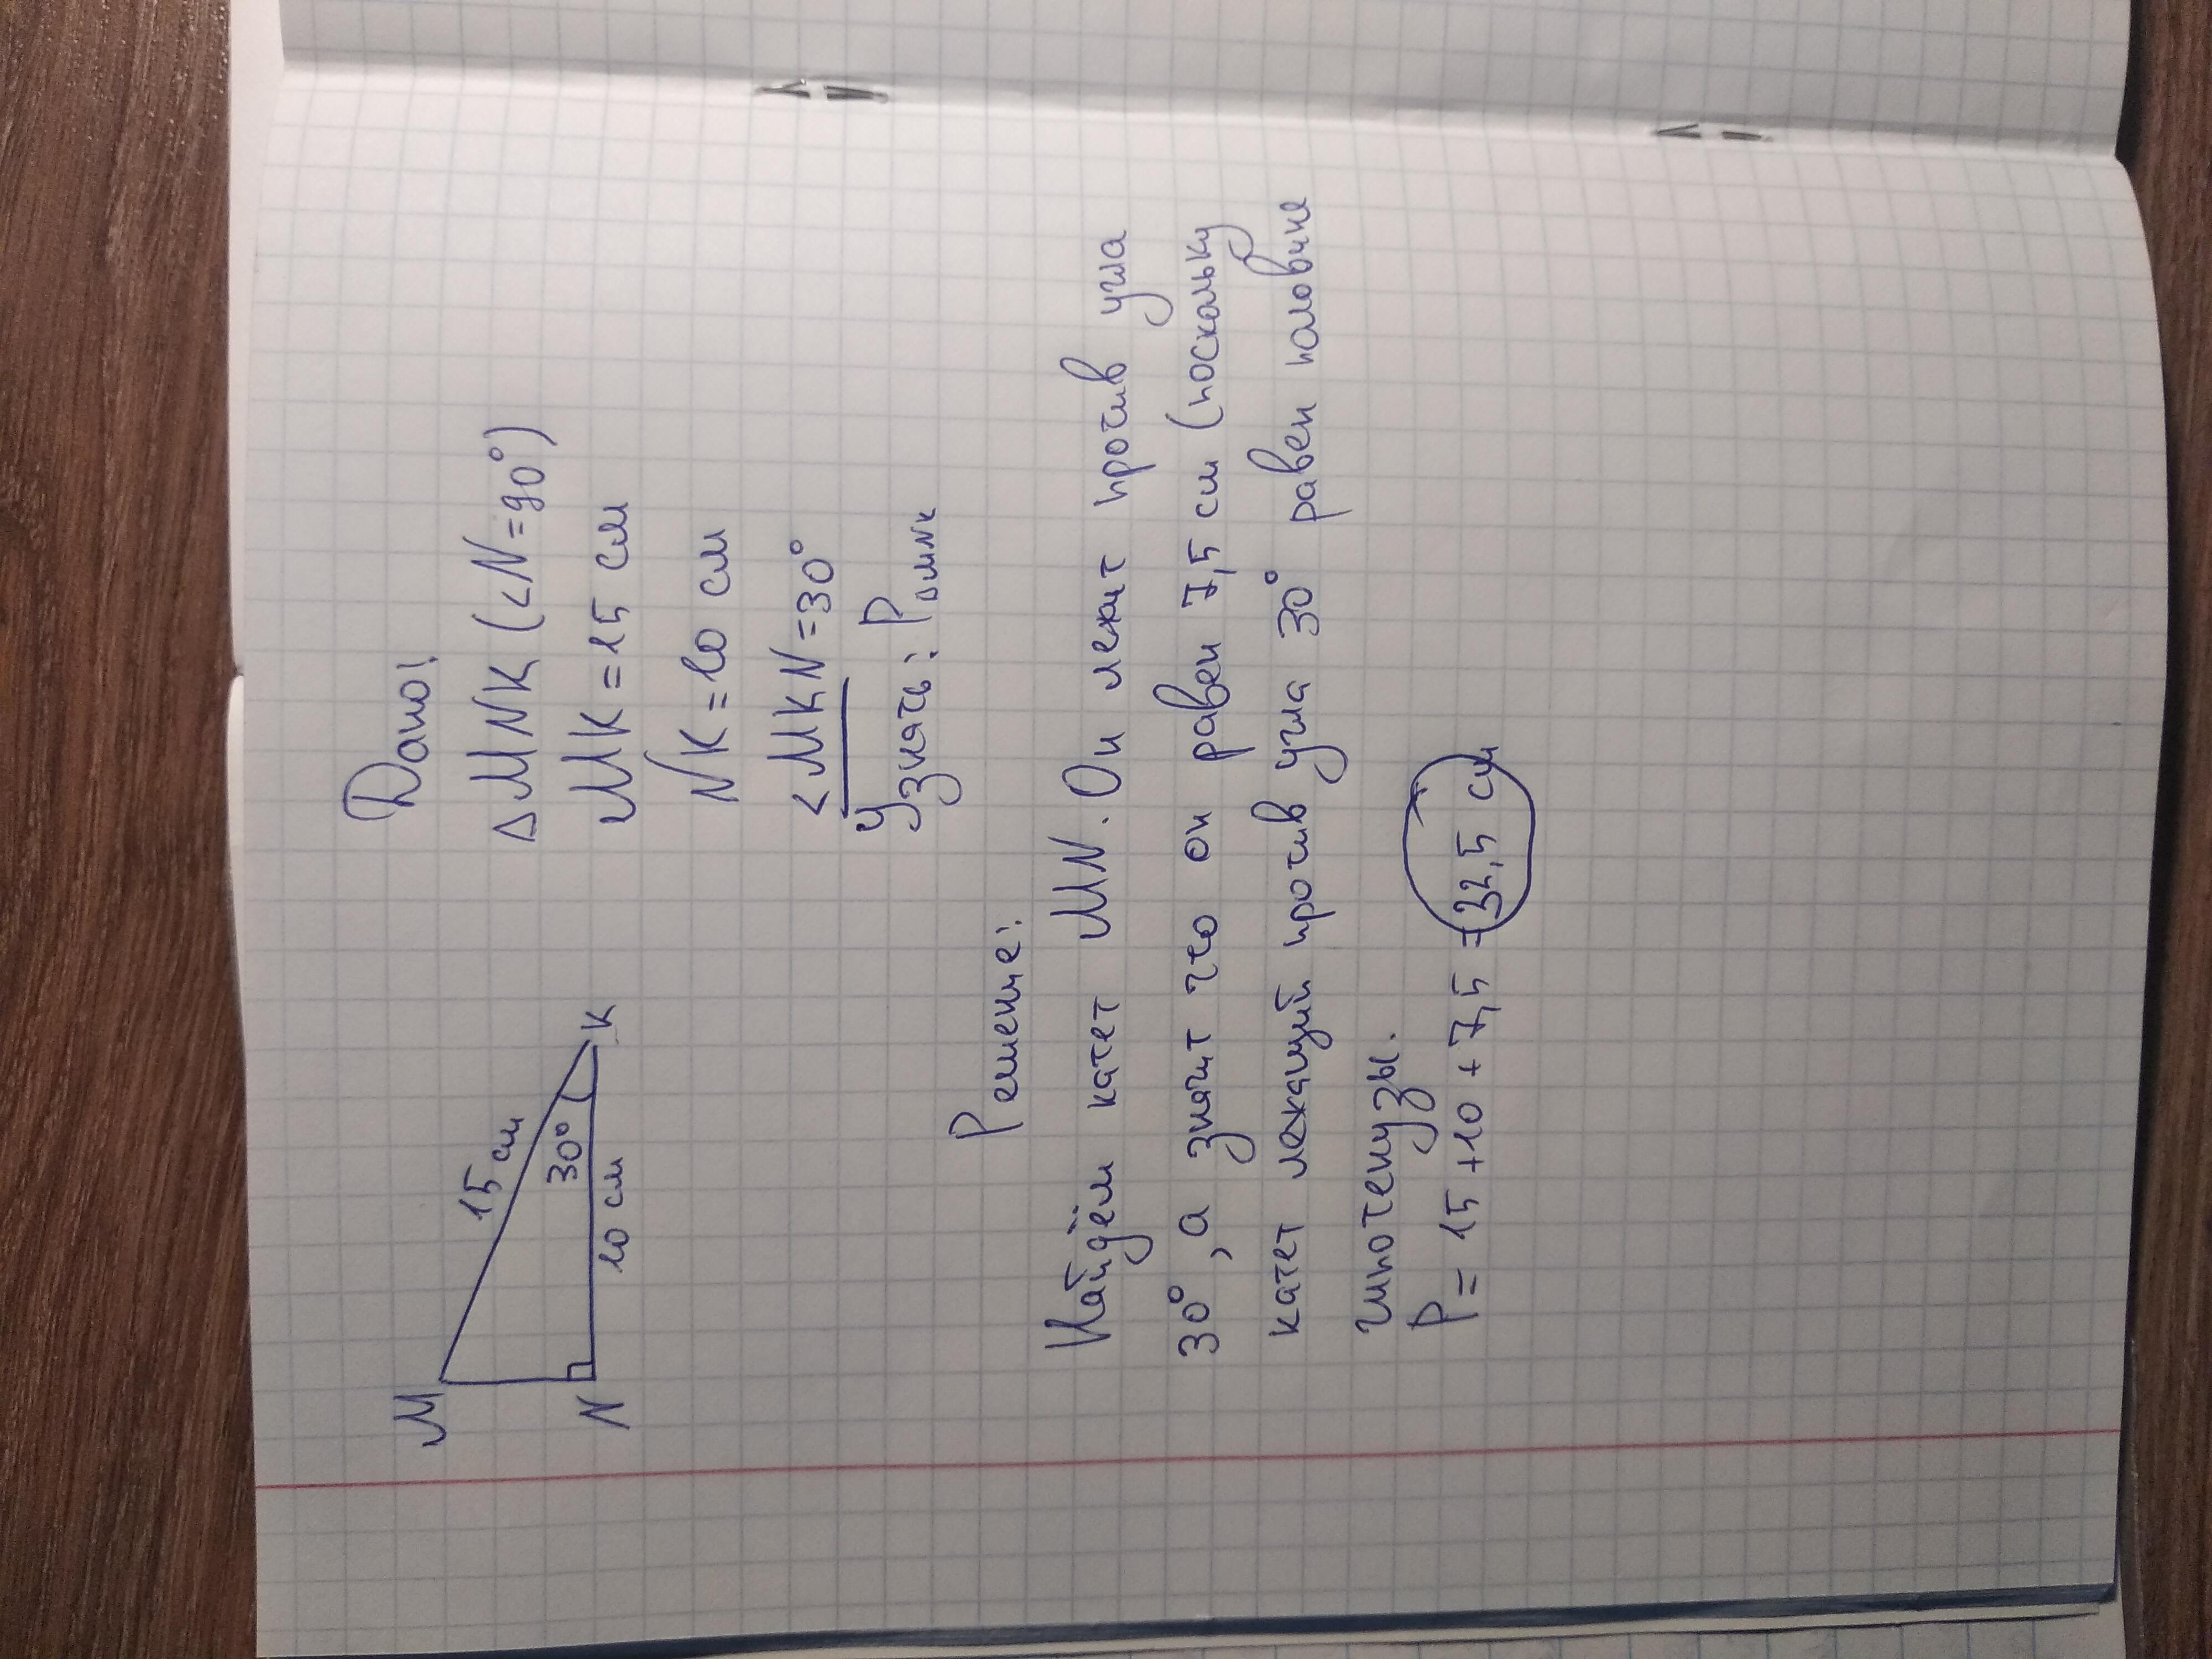 M
15 см
30°
N
10 см
K
Дано:
△MNK (<N=90°)
MK=15 см
NK=10 см
<MKN=30°
Узнать: P△MNK
Решение:
Найдём катет MN. Он лежит против угла
30°, а значит что он равен 7,5 см (поскольку
катет лежащий против угла 30° равен половине
гипотенузы.
P = 15+10+7,5 = 32,5 см